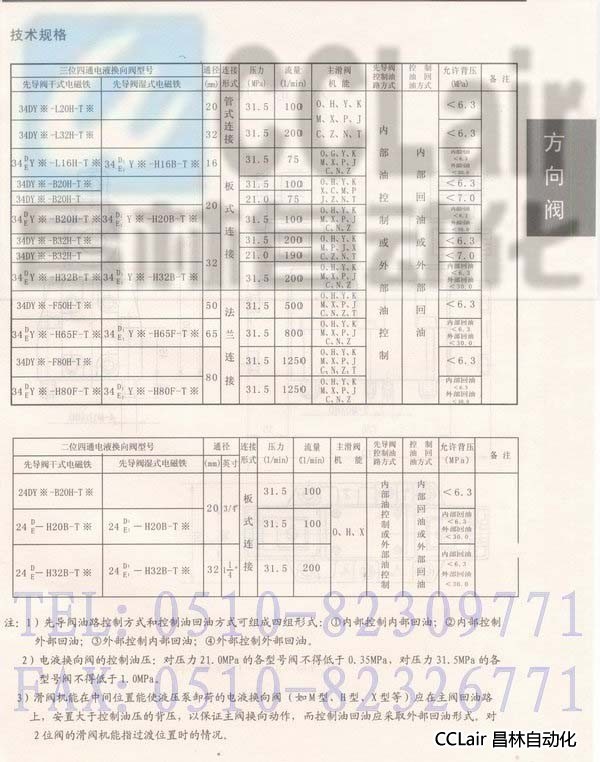 技术规格
三位四通电液换向阀型号 通径 连接 压力 流量 主滑阀 先导阀 控制 允许背压 备注
先导阀干式电磁铁 先导阀湿式电磁铁 (mm) 形式 (MPa) (l/min) 机能 控制油路方式 油回油方式 (MPa)
34DY※-L20H-T※ 20 管式连接 31.5 100 O、H、Y、K M、X、P、J C、Z、N、T 内部油控制或外部油控制 内部回油或外部回油 <6.3
34DY※-L32H-T※ 32 31.5 200 <6.3
Y※-L16H-T※ Y※-H16B-T※ 16 板式连接 31.5 75 O、G、Y、K M、X、P、J C、N、Z
34DY※-B20H-T※ 20 31.5 100 O、H、Y、K <6.3
34DY※-B20H-T※ 21.0 75 J、Z、N、T <7.0
Y※-B20H-T※ -H20B-T※ 31.5 100 O、H、Y、K M、X、P、J C、N、Z
34DY※-B32H-T※ 32 31.5 200 O、H、Y、K <6.3
34DY※-B32H-T※ 21.0 190 C、N、Z、T <7.0
Y※-H32B-T※ Y※-H32B-T※ 31.5 200 O、H、Y、K M、X、P、J C、N、Z 内部回油 <6.3 外部回油 <30.0
34DY※-F50H-T※ 50 法兰连接 31.5 500 O、H、Y、K M、X、P、J C、N、Z、T <6.3
Y※-H65F-T※ Y※-H65F-T※ 65 31.5 800 O、H、Y、K M、X、P、J C、N、Z 内部回油 <6.3 外部回油 <30.0
34DY※-F80H-T※ 80 31.5 1250 O、H、Y、K M、X、P、J C、N、Z、T <6.3
Y※-H80F-T※ Y※-H80F-T※ 31.5 1250 O、H、Y、K M、X、P、J C、N、Z 内部回油 <6.3
方向阀
二位四通电液换向阀型号 通径 连接 压力 流量 主滑阀 先导阀 控制 允许背压 备注
先导阀干式电磁铁 先导阀湿式电磁铁 (mm) 英寸 形式 (l/min) (l/min) 机能 控制油路方式 油回油方式 (MPa)
24DY※-B20H-T※ 20 3/4" 板式连接 31.5 100 O、H、X 内部油控制或外部油控制 内部回油或外部回油 <6.3
24 D/E —H20B-T※ 24 —H20B-T※ 31.5 100 内部回油 <6.3 外部回油 <30.0
24 D/E —H32B-T※ 24 —H32B-T※ 32 1 1/4" 31.5 200 内部回油 <6.3 外部回油 <30.0
TEL: 0510-82309771
注:1)先导阀油路控制方式和控制油回油方式可组成四组形式:①内部控制内部回油;②内部控制
外部回油;③外部控制内部回油;④外部控制外部回油。
2)电液换向阀的控制油压:对压力21.0MPa的各型号阀不得低于0.35MPa,对压力31.5MPa的各
型号阀不得低于1.0MPa。
FAX: 0510-82326771
3)滑阀机能在中间位置能使液压泵卸荷的电液换向阀(如M型、H型、X型等)应在主阀回油路
上,安置大于控制油压的背压,以保证主阀换向动作,而控制油回油应采取外部回油形式。对
2位阀的滑阀机能指过渡位置时的情况。
CCLair
CCLair 昌林自动化